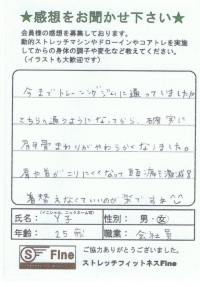 ★感想をお聞かせ下さい★
会員様の感想を募集しております。
動的ストレッチマシンやドローインやコアトレを実施
してからの身体の調子や変化など教えてください。
(イラストも大歓迎です)
今までトレーニングジムに通っていました!!
こちらへ通うようになってから、確実に
肩甲骨まわりがやわらかくなりました。
肩や首がこりにくくなって頭痛も激減!!
着替えなくていいのが楽ですね
(イニシャル、ニックネーム可)
氏名: 性別: 男・女
年齢: 25才 職業: 会社員
ご協力ありがとうございました。
S Fine ストレッチフィットネスFine